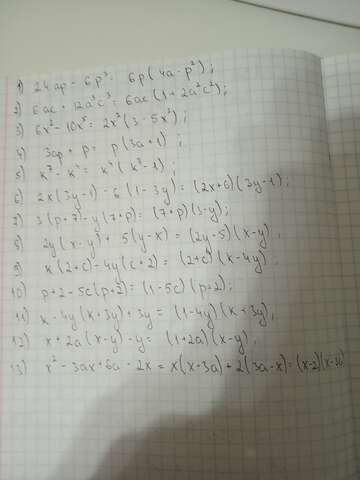 1) 24ap - 6p³ = 6p(4a - p²);
2) 6ac + 12a³c³ = 6ac(1 + 2a²c²);
3) 6x² - 10x⁵ = 2x²(3 - 5x³);
4) 3ap + p = p(3a + 1);
5) k⁷ - k⁴ = k⁴(k³ - 1);
6) 2x(3y-1) - 6(1-3y) = (2x+6)(3y-1);
7) 3(p+7) - y(7+p) = (7+p)(3-y);
8) 2y(x-y) + 5(y-x) = (2y-5)(x-y).
9) k(2+c) - 4y(c+2) = (2+c)(k-4y).
10) p+2-5c(p+2) = (1-5c)(p+2);
11) k-4y(k+3y)+3y = (1-4y)(k+3y),
12) x+2a(x-y)-y = (1+2a)(x-y).
13) x²-3ax+6a-2x = x(x-3a)+2(3a-x) = (x-2)(x-3a)